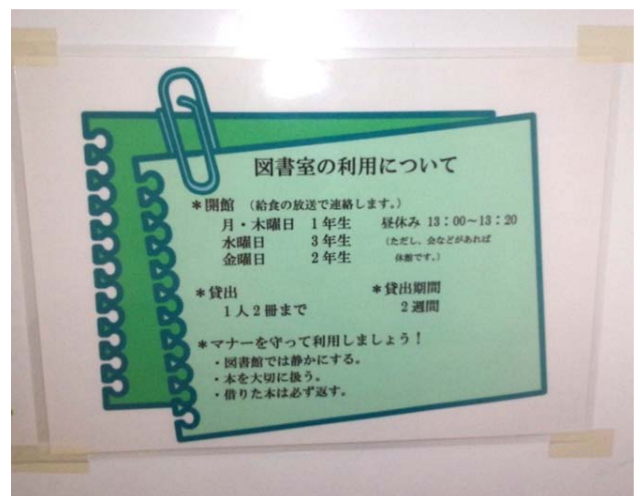 図書室の利用について
*開館 (給食の放送で連絡します。)
月・木曜日 1年生 昼休み 13:00~13:20
水曜日 3年生 (ただし、会などがあれば
金曜日 2年生 休館です。)
*貸出 *貸出期間
1人2冊まで 2週間
*マナーを守って利用しましょう!
・図書館では静かにする。
・本を大切に扱う。
・借りた本は必ず返す。